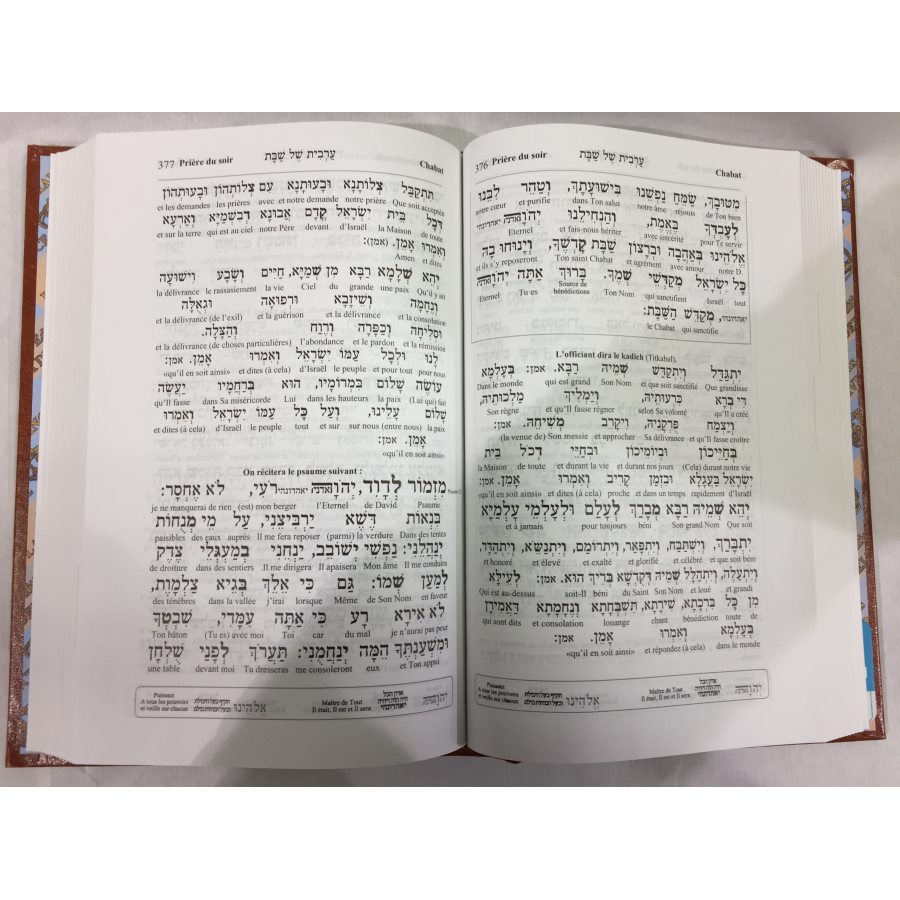 376 Prière du soir עַרְבִית שֶׁל שַׁבָּת Chabat
מִטּוּבָךְ, שַׂמֵּחַ נַפְשֵׁנוּ בִּישׁוּעָתָךְ, וְטַהֵר לִבֵּנוּ
notre cœur et purifie dans Ton salut notre âme réjouis de Ton bien
לְעָבְדְּךָ בֶּאֱמֶת, וְהַנְחִילֵנוּ יְהֹוָה
Eternel et fais-nous hériter avec sincérité pour Te servir
אֱלֹהֵינוּ בְּאַהֲבָה וּבְרָצוֹן שַׁבַּת קָדְשֶׁךָ, וְיָנוּחוּ בָהּ
et ils s'y reposeront Ton saint Chabat et agrément avec amour notre D.
כָּל יִשְׂרָאֵל מְקַדְּשֵׁי שְׁמֶךָ. בָּרוּךְ אַתָּה יְהֹוָה
Eternel Tu es Source de bénédictions Ton Nom qui sanctifient Israël tout
יאהדונהי, מְקַדֵּשׁ הַשַּׁבָּת:
le Chabat qui sanctifie
L'officiant dira le kadich (Titkabal).
יִתְגַּדַּל וְיִתְקַדַּשׁ שְׁמֵיהּ רַבָּא. אמן: בְּעָלְמָא
Dans le monde qui est grand Son Nom et que soit sanctifié Que grandisse
דִּי בְרָא כִרְעוּתֵיהּ, וְיַמְלִיךְ מַלְכוּתֵיהּ,
Son règne et qu'Il fasse régner selon Sa volomté qu'Il a créé
וְיַצְמַח פֻּרְקָנֵיהּ, וִיקָרֵב מְשִׁיחֵיהּ. אמן:
(la venue de) Son messie et approcher Sa délivrance et qu'Il fasse croître
בְּחַיֵּיכוֹן וּבְיוֹמֵיכוֹן וּבְחַיֵּי דְכָל בֵּית
la Maison de toute et durant la vie et durant nos jours (Cela) durant notre vie
יִשְׂרָאֵל בַּעֲגָלָא וּבִזְמַן קָרִיב וְאִמְרוּ אָמֵן. אמן:
«qu'il en soit ainsi» et dites (à cela) proche et dans un temps rapidement d'Israël
יְהֵא שְׁמֵיהּ רַבָּא מְבָרַךְ לְעָלַם וּלְעָלְמֵי עָלְמַיָּא
et à jamais pour toujours béni Son grand Nom Que soit
יִתְבָּרַךְ, וְיִשְׁתַּבַּח, וְיִתְפָּאַר, וְיִתְרוֹמַם, וְיִתְנַשֵּׂא, וְיִתְהַדָּר,
et honoré et élevé et exalté et glorifié et célébré et que soit béni
וְיִתְעַלֶּה, וְיִתְהַלָּל שְׁמֵיהּ דְּקֻדְשָׁא בְּרִיךְ הוּא. אמן: לְעֵילָּא
Qui est au-dessus soit-Il béni du Saint Son Nom et loué et grandi
מִן כָּל בִּרְכָתָא, שִׁירָתָא, תִּשְׁבְּחָתָא וְנֶחָמָתָא דַּאֲמִירָן
qui sont dits et consolation louange chant bénédiction toute de
בְּעָלְמָא וְאִמְרוּ אָמֵן. אמן:
«qu'il en soit ainsi» et répondez (à cela) dans le monde
יְהֹוָה אדון הכל היה הוה ויהיה יאהדונהי Maître de Tout Il était, Il est et Il sera אֱלֹהֵינוּ תקיף בעל היכולת ובעל הכוחות כולם Puissant A tous les pouvoirs et veille sur chacun
377 Prière du soir עַרְבִית שֶׁל שַׁבָּת Chabat
תִּתְקַבַּל צְלוֹתָנָא וּבָעוּתָנָא עִם צְלוֹתְהוֹן וּבָעוּתְהוֹן
et les demandes les prières avec et notre demande notre prière Que soit acceptée
דְּכָל בֵּית יִשְׂרָאֵל קֳדָם אֲבוּנָא דְּבִשְׁמַיָּא וְאַרְעָא
et sur la terre qui est au ciel notre Père devant d'Israël la Maison de toute
וְאִמְרוּ אָמֵן. (אמן):
Amen et dites
יְהֵא שְׁלָמָא רַבָּא מִן שְׁמַיָּא, חַיִּים וְשָׂבָע וִישׁוּעָה
la délivrance le rassasiement la vie Ciel du grande une paix Qu'il y ait
וְנֶחָמָה וְשֵׁיזָבָא וּרְפוּאָה וּגְאֻלָּה
et la délivrance (de l'exil) et la guérison et la délivrance et la consolation
וּסְלִיחָה וְכַפָּרָה וְרֵוַח וְהַצָּלָה.
et la délivrance (de choses particulières) l'abondance et le pardon et la rémission
לָנוּ וּלְכָל עַמּוֹ יִשְׂרָאֵל וְאִמְרוּ אָמֵן. אמן:
«qu'il en soit ainsi» et dites (à cela) d'Israël le peuple et pour tout pour nous
עוֹשֶׂה שָׁלוֹם בִּמְרוֹמָיו, הוּא בְּרַחֲמָיו יַעֲשֶׂה
qu'Il fasse dans Sa miséricorde Lui dans les hauteurs la paix (Lui qui) fait
שָׁלוֹם עָלֵינוּ, וְעַל כָּל עַמּוֹ יִשְׂרָאֵל וְאִמְרוּ
et dites (à cela) d'Israël le peuple tout et sur sur nous (entre nous) la paix
אָמֵן. אמן:
«qu'il en soit ainsi»
On récitera le psaume suivant :
מִזְמוֹר לְדָוִד, יְהֹוָה יאהדונהי רֹעִי, לֹא אֶחְסָר:
je ne manquerai de rien (est) mon berger l'Eternel de David Psaume
בִּנְאוֹת דֶּשֶׁא יַרְבִּיצֵנִי, עַל מֵי מְנֻחוֹת
paisibles des eaux auprès Il me fera reposer (parmi) la verdure Dans des tentes
יְנַהֲלֵנִי: נַפְשִׁי יְשׁוֹבֵב, יַנְחֵנִי בְמַעְגְּלֵי צֶדֶק
de droiture dans des sentiers Il me dirigera Il apaisera Mon âme Il me conduira
לְמַעַן שְׁמוֹ: גַּם כִּי אֵלֵךְ בְּגֵיא צַלְמָוֶת,
des ténèbres dans la vallée j'irai lorsque Même de Son Nom en faveur
לֹא אִירָא רָע כִּי אַתָּה עִמָּדִי, שִׁבְטְךָ
Ton bâton (Tu es) avec moi Toi car du mal je n'aurai pas peur
וּמִשְׁעַנְתֶּךָ הֵמָּה יְנַחֲמֻנִי: תַּעֲרֹךְ לְפָנַי שֻׁלְחָן
une table devant moi Tu dresseras me consoleront eux et Ton appui
יְהֹוָה אדון הכל היה הוה ויהיה יאהדונהי Maître de Tout Il était, Il est et Il sera אֱלֹהֵינוּ תקיף בעל היכולת ובעל הכוחות כולם Puissant A tous les pouvoirs et veille sur chacun